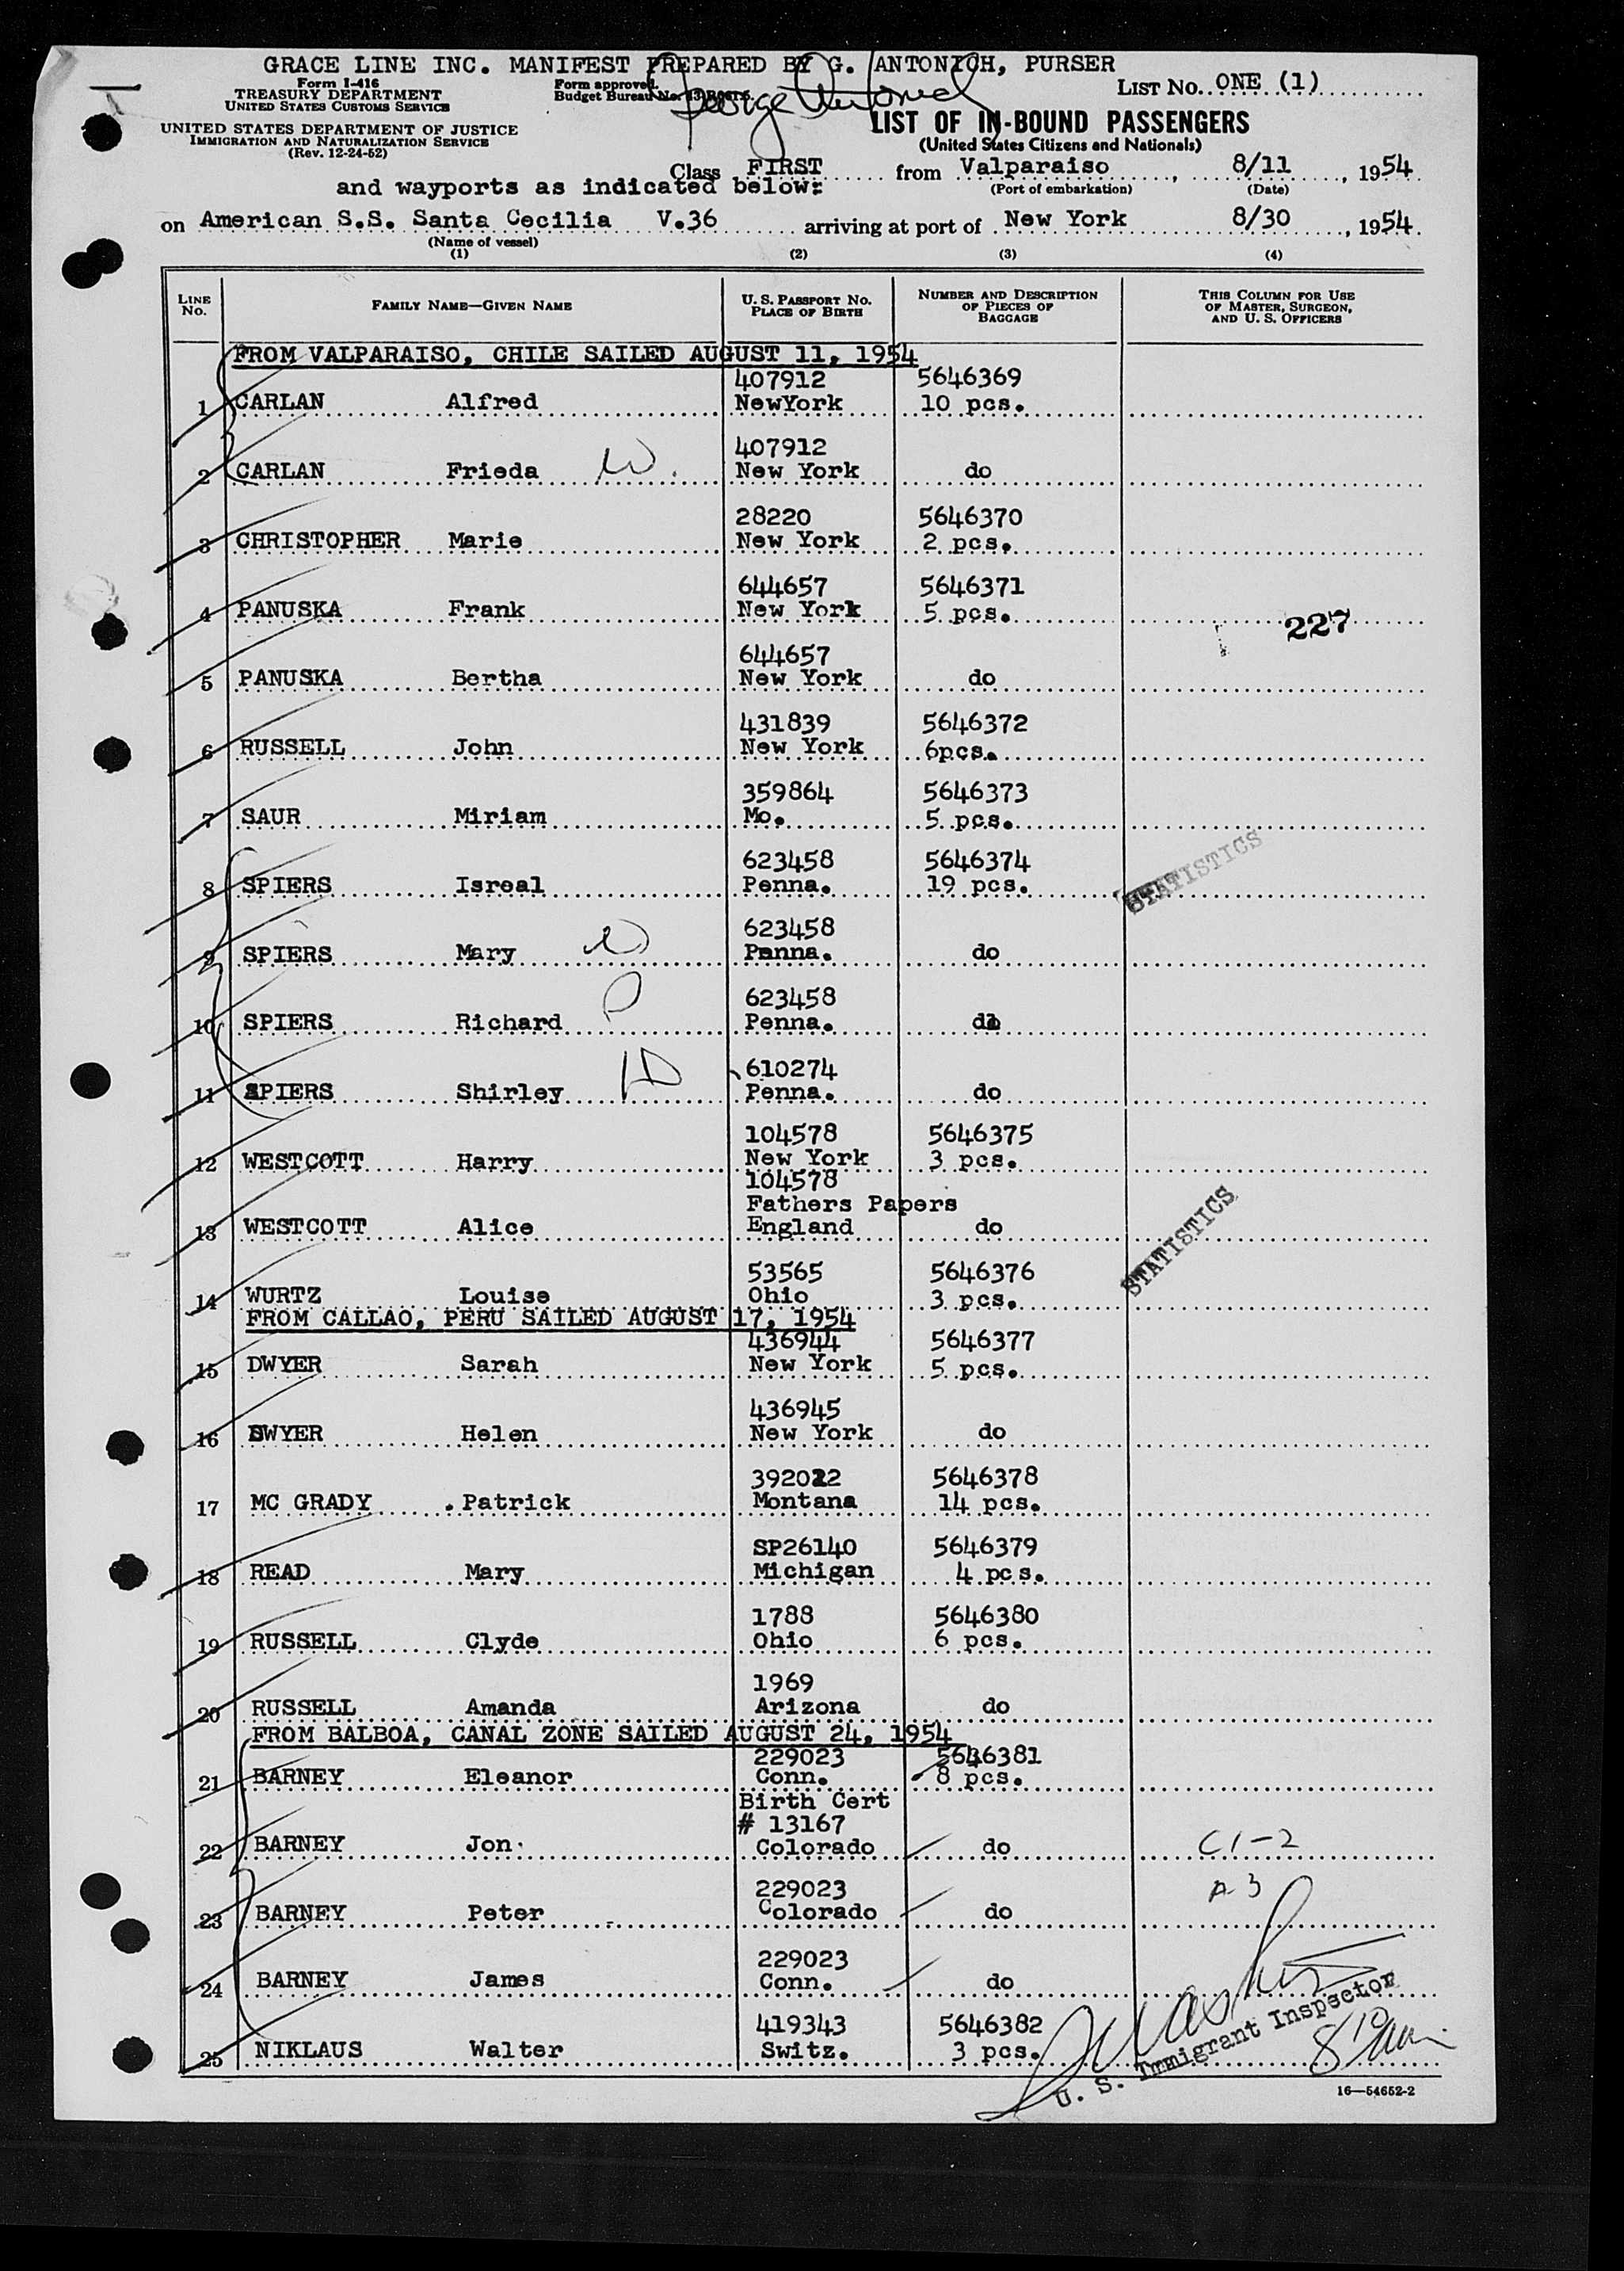 GRACE LINE INC. MANIFEST PREPARED BY G. ANTONICH, PURSER
Form I-416
TREASURY DEPARTMENT
UNITED STATES CUSTOMS SERVICE
Form approved.
Budget Bureau No.
LIST No. ONE (1)
George Antonich
UNITED STATES DEPARTMENT OF JUSTICE
IMMIGRATION AND NATURALIZATION SERVICE
(Rev. 12-24-52)
LIST OF IN-BOUND PASSENGERS
(United States Citizens and Nationals)
Class FIRST from Valparaiso, 8/11, 1954
(Port of embarkation) (Date)
and wayports as indicated below:
on American S.S. Santa Cecilia V.36 arriving at port of New York 8/30, 1954
(Name of vessel)
(1) (2) (3) (4)
LINE No. FAMILY NAME—GIVEN NAME U. S. PASSPORT No. PLACE OF BIRTH NUMBER AND DESCRIPTION OF PIECES OF BAGGAGE THIS COLUMN FOR USE OF MASTER, SURGEON, AND U. S. OFFICERS
FROM VALPARAISO, CHILE SAILED AUGUST 11, 1954
407912 5646369
1 CARLAN Alfred NewYork 10 pcs.
407912
2 CARLAN Frieda W. New York do
28220 5646370
3 CHRISTOPHER Marie New York 2 pcs.
644657 5646371
4 PANUSKA Frank New York 5 pcs. 227
644657
5 PANUSKA Bertha New York do
431839 5646372
6 RUSSELL John New York 6pcs.
359864 5646373
7 SAUR Miriam Mo. 5 pcs.
623458 5646374
8 SPIERS Isreal Penna. 19 pcs. STATISTICS
623458
9 SPIERS Mary W Penna. do
623458
10 SPIERS Richard Penna. do
610274
11 SPIERS Shirley D Penna. do
104578 5646375
12 WESTCOTT Harry New York 3 pcs.
104578
Fathers Papers
13 WESTCOTT Alice England do
STATISTICS
53565 5646376
14 WURTZ Louise Ohio 3 pcs.
FROM CALLAO, PERU SAILED AUGUST 17, 1954
436944 5646377
15 DWYER Sarah New York 5 pcs.
436945
16 DWYER Helen New York do
392022 5646378
17 MC GRADY Patrick Montana 14 pcs.
SP26140 5646379
18 READ Mary Michigan 4 pcs.
1788 5646380
19 RUSSELL Clyde Ohio 6 pcs.
1969
20 RUSSELL Amanda Arizona do
FROM BALBOA, CANAL ZONE SAILED AUGUST 24, 1954
229023 5646381
21 BARNEY Eleanor Conn. 8 pcs.
Birth Cert
# 13167
22 BARNEY Jon Colorado do C1-2
229023 A-3
23 BARNEY Peter Colorado do
229023
24 BARNEY James Conn. do
419343 5646382
25 NIKLAUS Walter Switz. 3 pcs.
U. S. Immigrant Inspector
8 10 am
16—54652-2